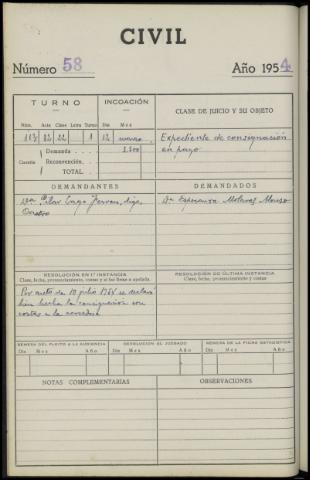 CIVIL
Número 58 Año 1954
TURNO INCOACIÓN CLASE DE JUICIO Y SU OBJETO
Núm. Acta Clase Letra Turno Día Mes
113 82 22 1 12 marzo Expediente de consignación
Demanda 1.500 en pago
Cuantía Reconvención.
TOTAL
DEMANDANTES DEMANDADOS
Dª Pilar Dª Esperanza Alonso
RESOLUCIÓN EN 1ª INSTANCIA RESOLUCIÓN DE ÚLTIMA INSTANCIA
Clase, fecha, pronunciamiento, costas y si fué firme o apelada. Clase, fecha, pronunciamiento y costas
Por auto de 10 julio 1954 se declaró
bien hecha la consignación con
costas a la acreedora
REMESA DEL PLEITO A LA AUDIENCIA DEVOLUCIÓN AL JUZGADO REMESA DE LA FICHA ESTADÍSTICA
Día Mes Año Día Mes Año Día Mes Año
NOTAS COMPLEMENTARIAS OBSERVACIONES